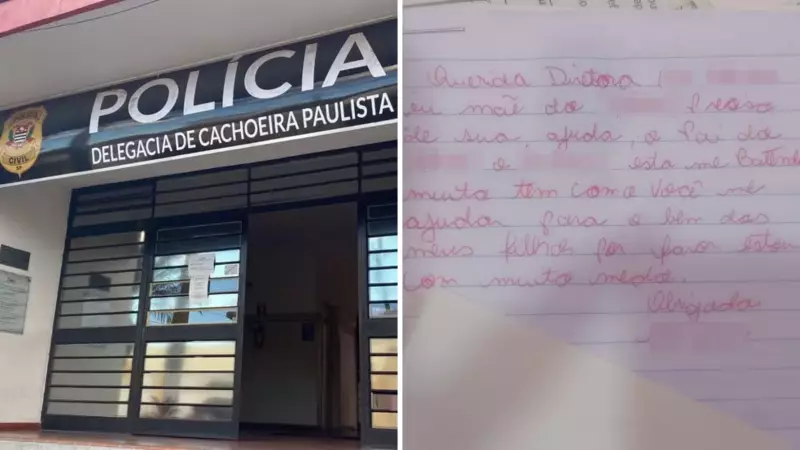 POLÍCIA
DELEGACIA DE CACHOEIRA PAULISTA
CIVIL
Querida Diretora
eu mãe do Preciso
de sua, ajuda, o Pai do
e esta me Batendo
muito tem como você me
ajudar para o bem dos
meus filhos por favor estou
com muito medo.
Obrigada